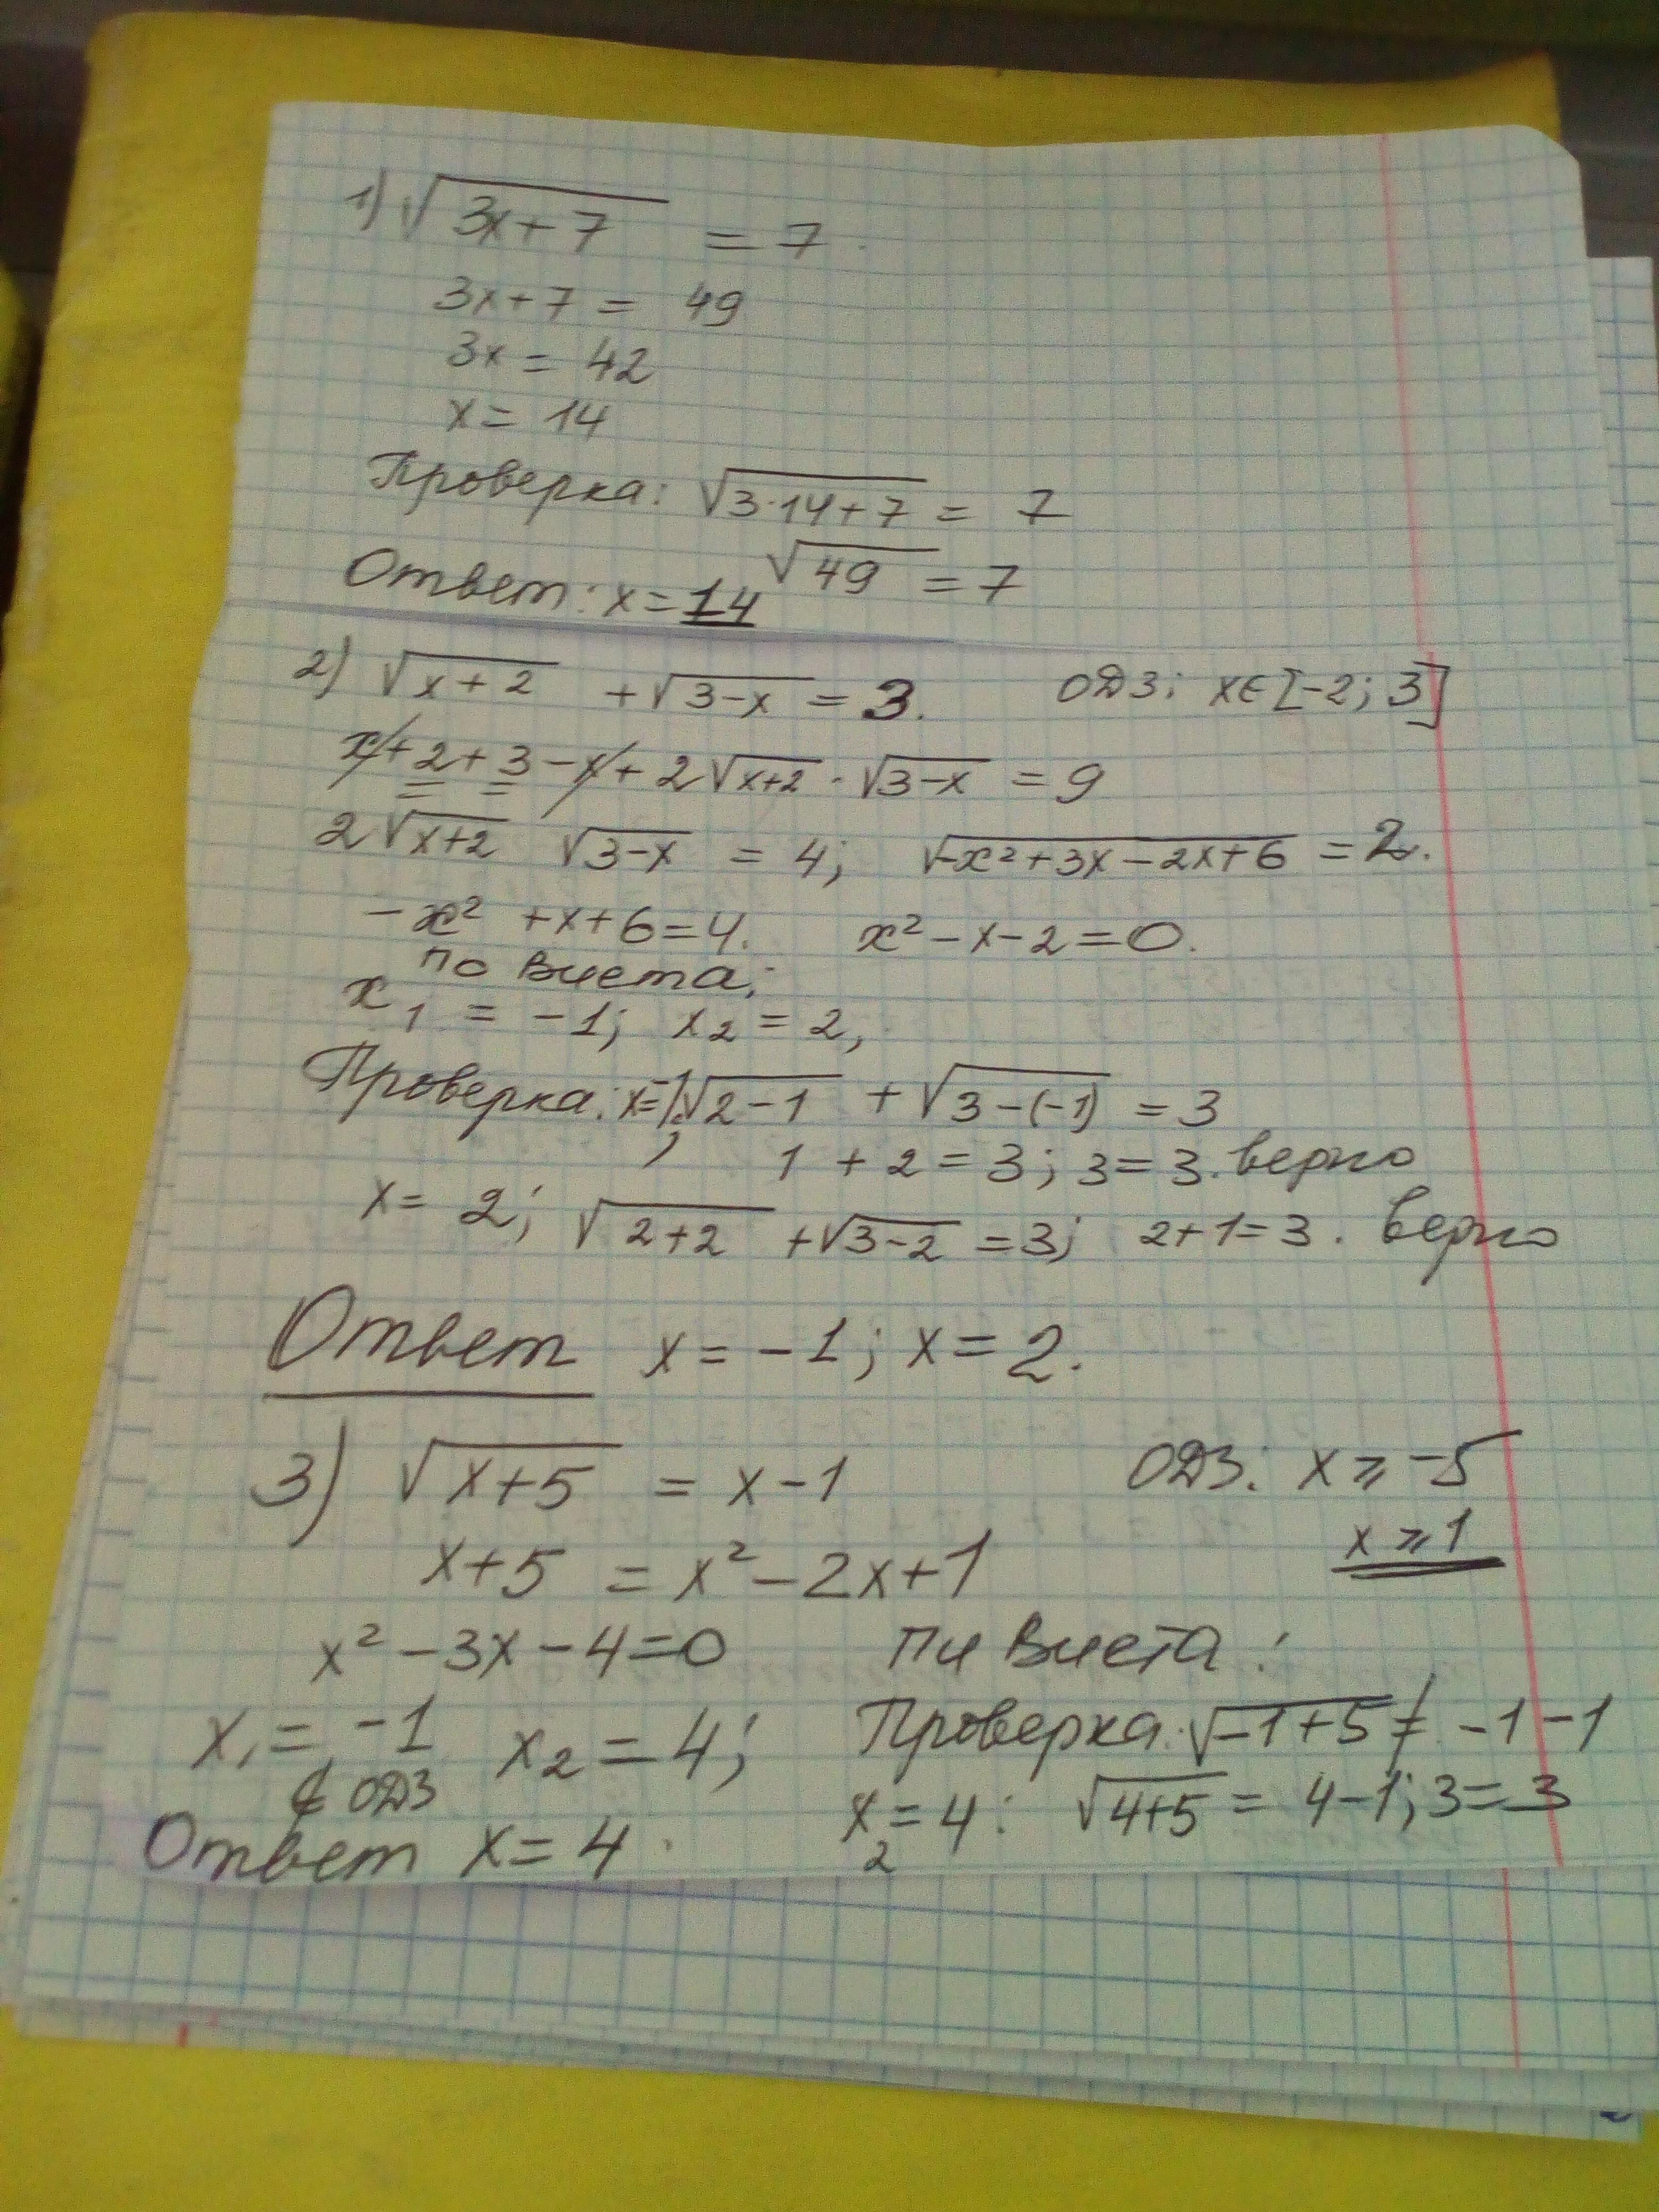 1) √(3x+7) = 7.
3x+7 = 49
3x = 42
x = 14
Проверка: √(3·14+7) = 7
√49 = 7
Ответ: x = 14
2) √(x+2) + √(3-x) = 3. ОДЗ: x∈[-2; 3]
x+2+3-x+2√(x+2)·√(3-x) = 9
2√(x+2) √(3-x) = 4; √(-x²+3x-2x+6) = 2.
-x²+x+6=4. x²-x-2=0.
по Виета:
x₁ = -1; x₂ = 2,
Проверка: x=-1; √(2-1) + √(3-(-1)) = 3
1 + 2 = 3; 3 = 3. верно
x = 2; √(2+2) + √(3-2) = 3; 2+1=3. верно
Ответ x = -1; x = 2.
3) √(x+5) = x-1 ОДЗ: x ⩾ -5
x ⩾ 1
x+5 = x²-2x+1
x²-3x-4=0 пи Виета:
x₁ = -1 x₂ = 4; Проверка: √(-1+5) ≠ -1-1
∉ ОДЗ x₂ = 4: √(4+5) = 4-1; 3=3
Ответ x = 4.